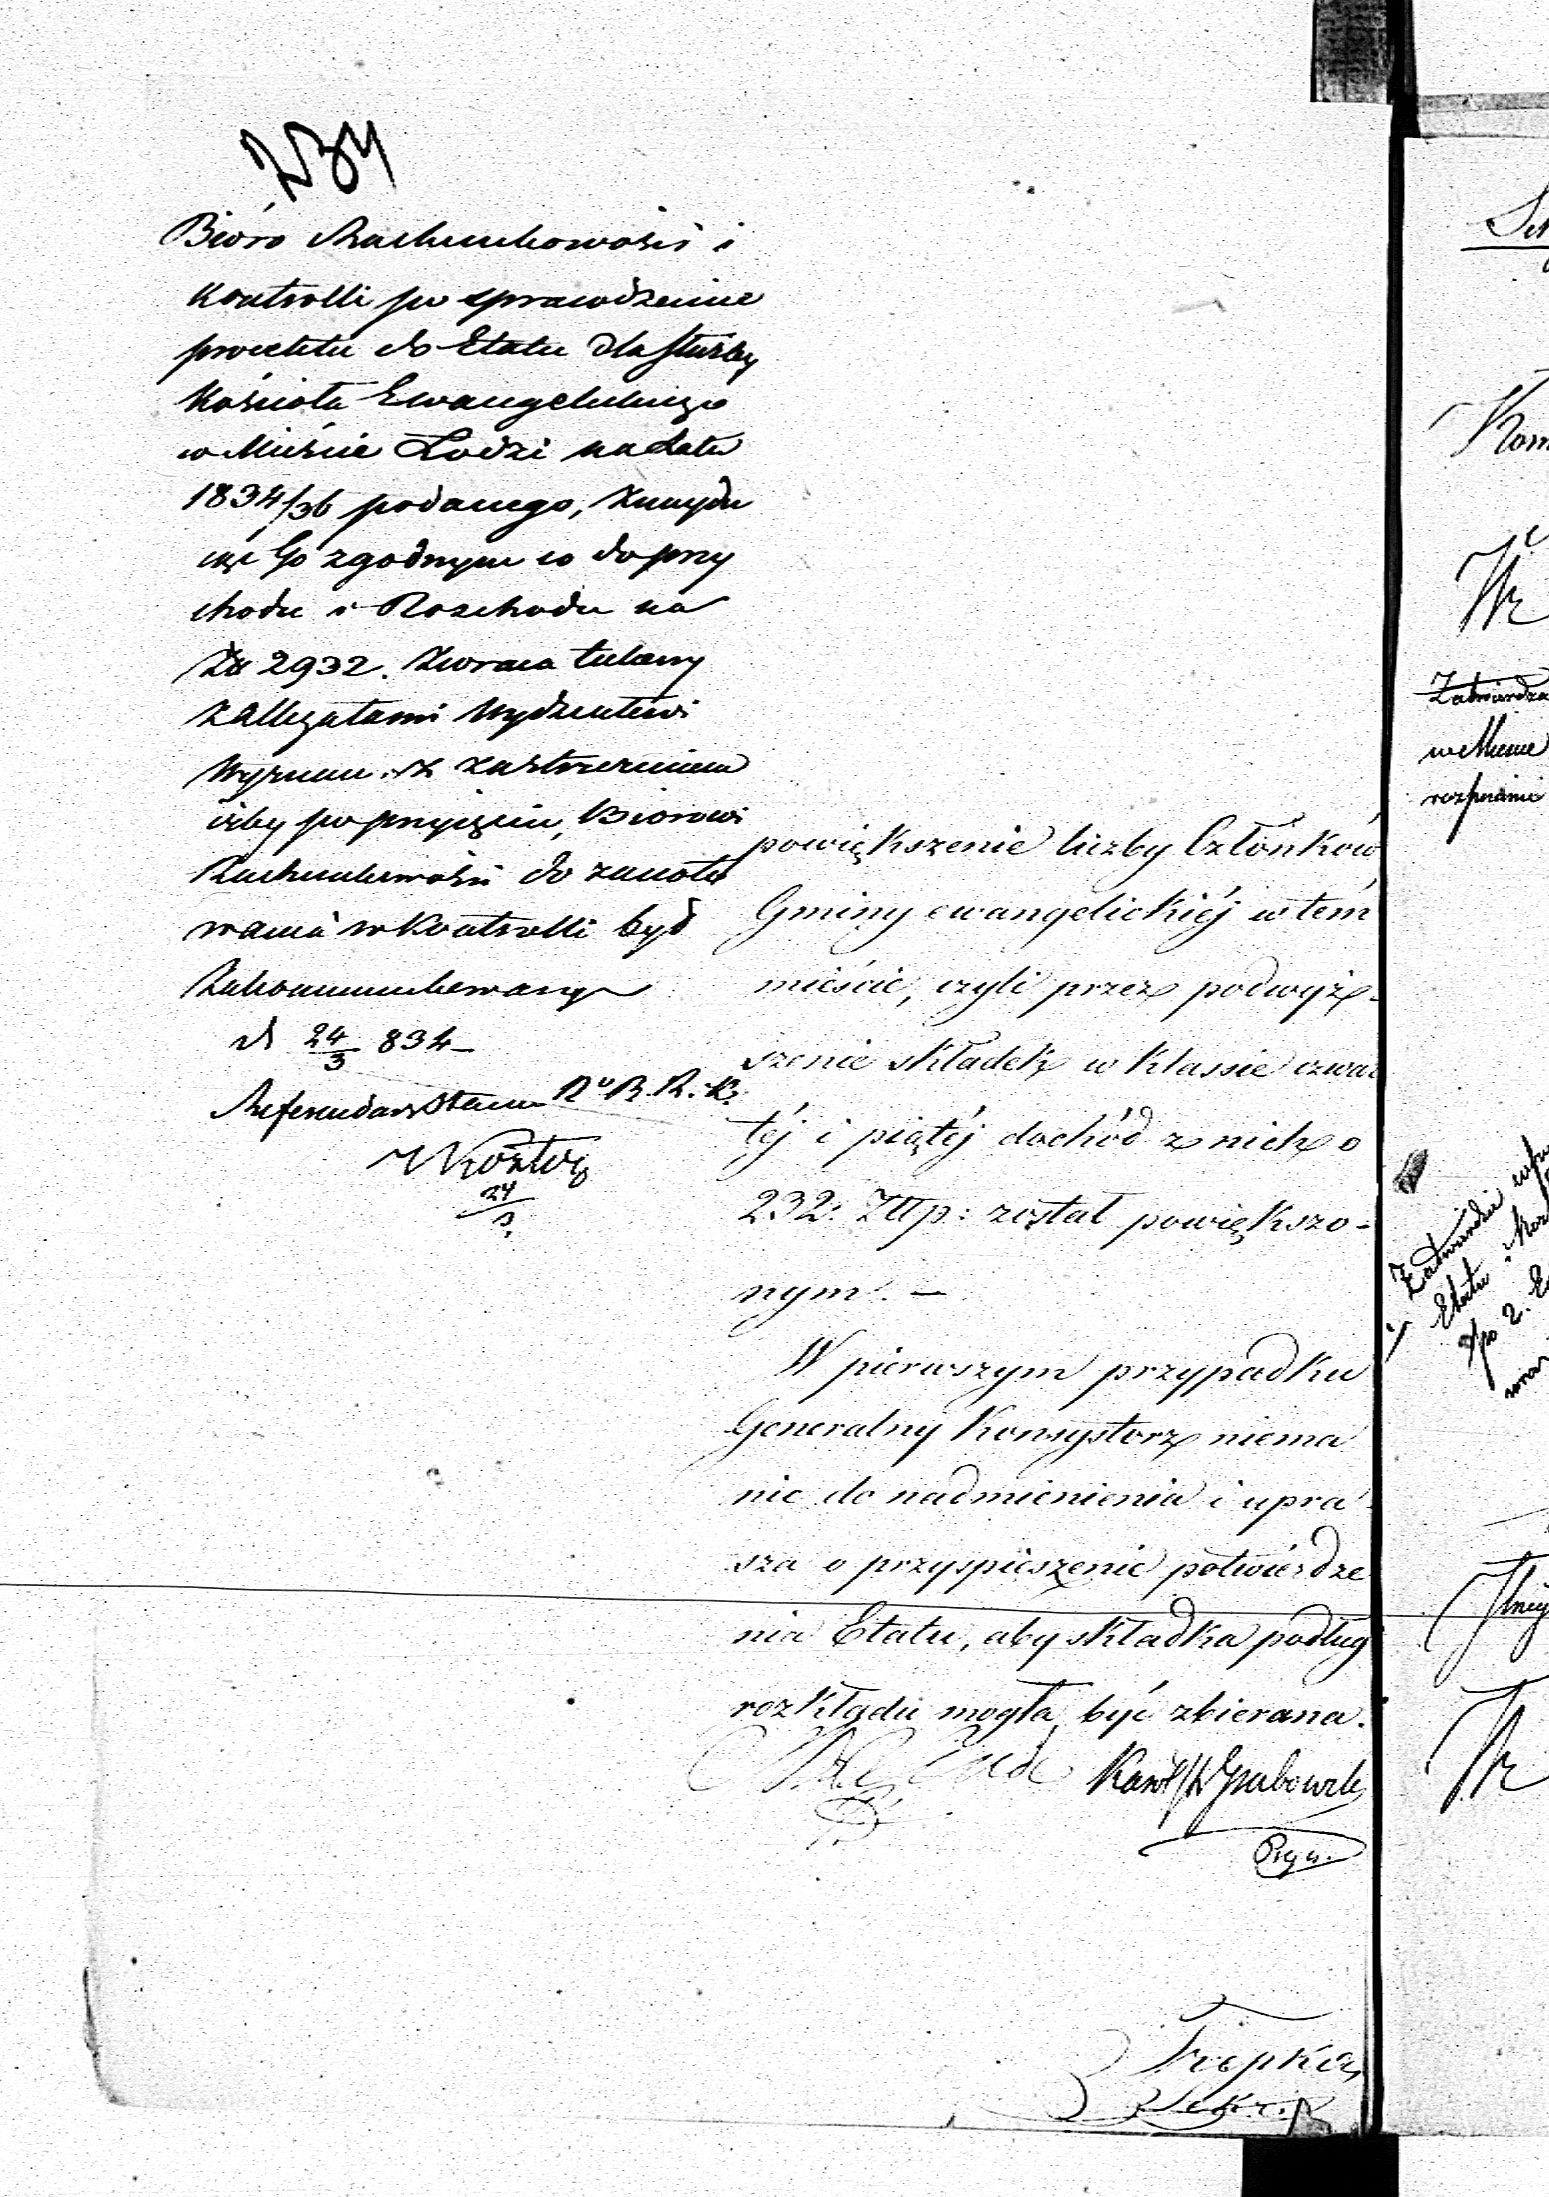 234
Bióro Rachunkowości i
Kontrolli po sprawdzeniu
proiektu do Etatu dla służby
Kościoła Ewangelickiego
w Mieście Łodzi na lata
1834/36 podanego, znaydu
iąc Go zgodnym co do przy
chodu i Rozchodu na
Zł 2932. zwraca takowy
z allegatami Wydziałowi
Wyznań. z zastrzeżeniem
iżby po przyięciu, Biorowi
Rachunkowości do zanoto
wania w Kontrolli był
Zakommunikowany
d 24/3 834
Referendarz Stanu N. B. R. K.
24/3
powiększenie liczby Członków
Gminy ewangelickiéj w tém
mieście, czyli przez podwyż-
szenie składek w Klassie czwar
téj i piątéj dochód z nich o
232. Złłp: został powiększo-
nym. —
W pierwszym przypadku
Generalny Konsystorz niema
nic do nadmienienia i upra-
sza o przyspieszenie potwierdze
nia Etatu, aby składka podług
rozkładu mogła być zbierana.
Karol Grabowski
Trepka
Sekr.
Zatwierdza
w Mieście